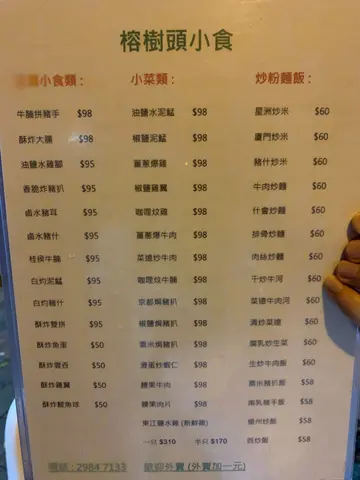 榕樹頭小食
小食類：
牛腩拼豬手 $98
酥炸大腸 $98
油鹽水雞腳 $95
香脆炸豬扒 $95
鹵水豬耳 $95
鹵水豬什 $95
柱侯牛腩 $95
白灼泥鯭 $95
白灼豬什 $95
酥炸雙拼 $95
酥炸魚蛋 $50
酥炸雲吞 $50
酥炸雞翼 $50
酥炸鯪魚球 $50
小菜類：
油鹽水泥鯭 $98
椒鹽泥鯭 $98
薑蔥爆雞 $98
椒鹽雞翼 $98
咖喱炆雞 $98
薑蔥爆牛肉 $98
菜遠炒牛肉 $98
咖喱炆牛腩 $98
京都焗豬扒 $98
椒鹽焗豬扒 $98
粟米焗豬扒 $98
滑蛋炒蝦仁 $98
腰果牛肉 $98
腰果肉片 $98
東江鹽水雞 (新鮮雞)
一只 $310 半只 $170
炒粉麵飯：
星洲炒米 $60
廈門炒米 $60
豬什炒米 $60
牛肉炒麵 $60
什會炒麵 $60
排骨炒麵 $60
肉絲炒麵 $60
干炒牛河 $60
菜遠牛肉河 $60
清炒菜遠 $60
腐乳炒生菜 $60
生炒牛肉飯 $60
粟米豬扒飯 $58
南乳豬手飯 $58
揚州炒飯 $58
西炒飯 $58
電話：2984 7133 歡迎外賣 (外賣加一元)